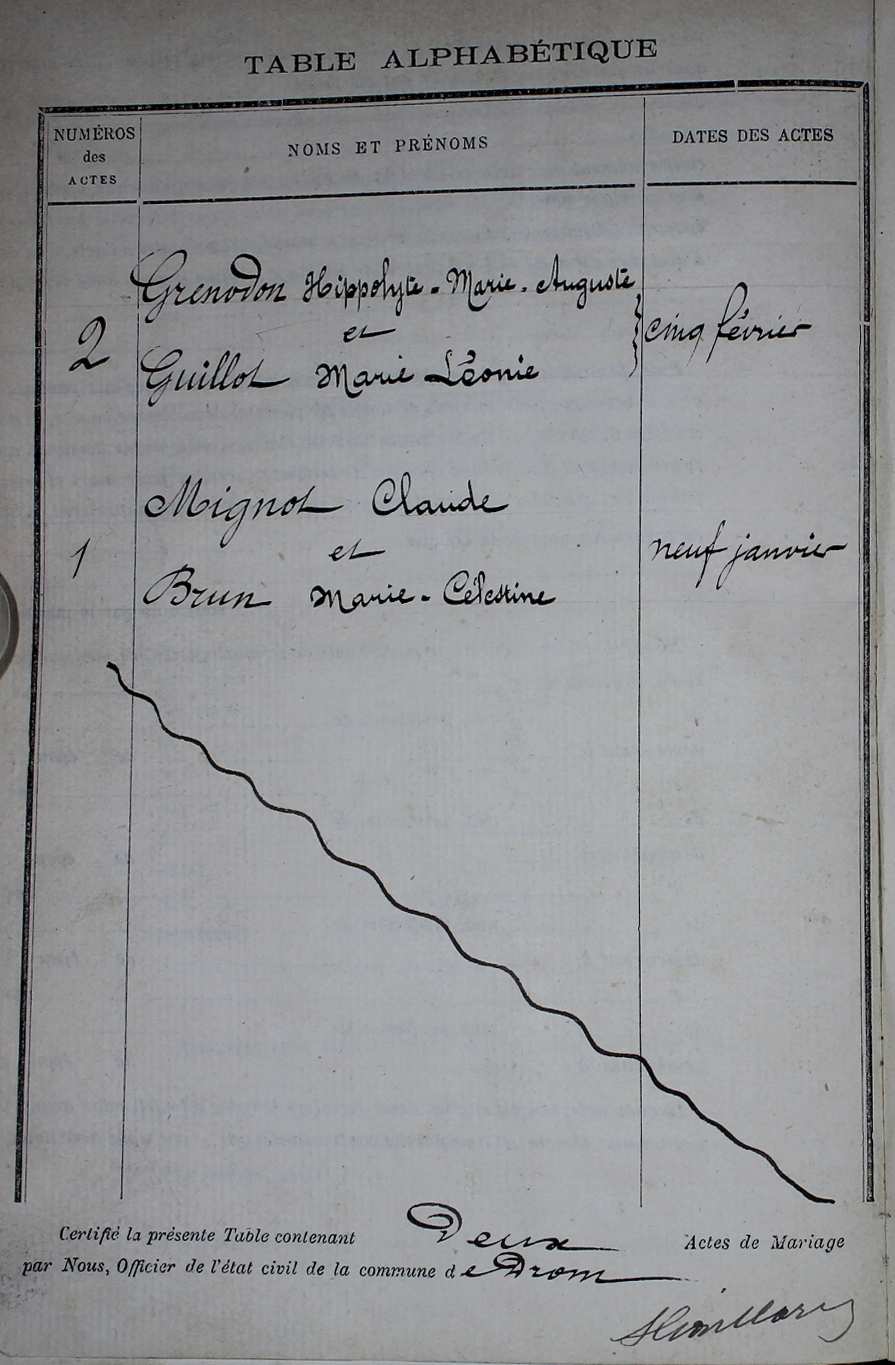 TABLE ALPHABÉTIQUE
NUMÉROS
des
ACTES
NOMS ET PRÉNOMS
DATES DES ACTES
Grenodon Hippolyte-Marie-Auguste
et
2
cinq février
Guillot Marie Léonie
Mignot Claude
et
1
neuf janvier
Brun Marie-Célestine
Certifié la présente Table contenant Deux Actes de Mariage
par Nous, Officier de l'état civil de la commune de Drom